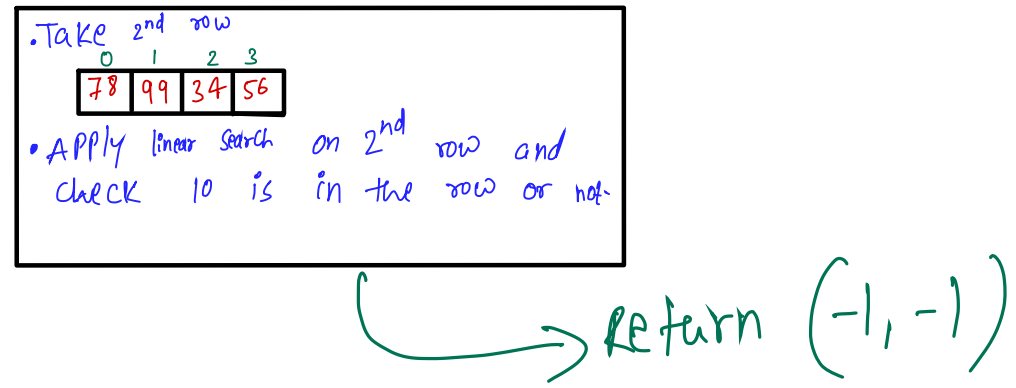 • Take 2nd row
0 1 2 3
78 99 34 56
• APPly linear search on 2nd row and
check 10 is in the row or not.
Return (-1, -1)